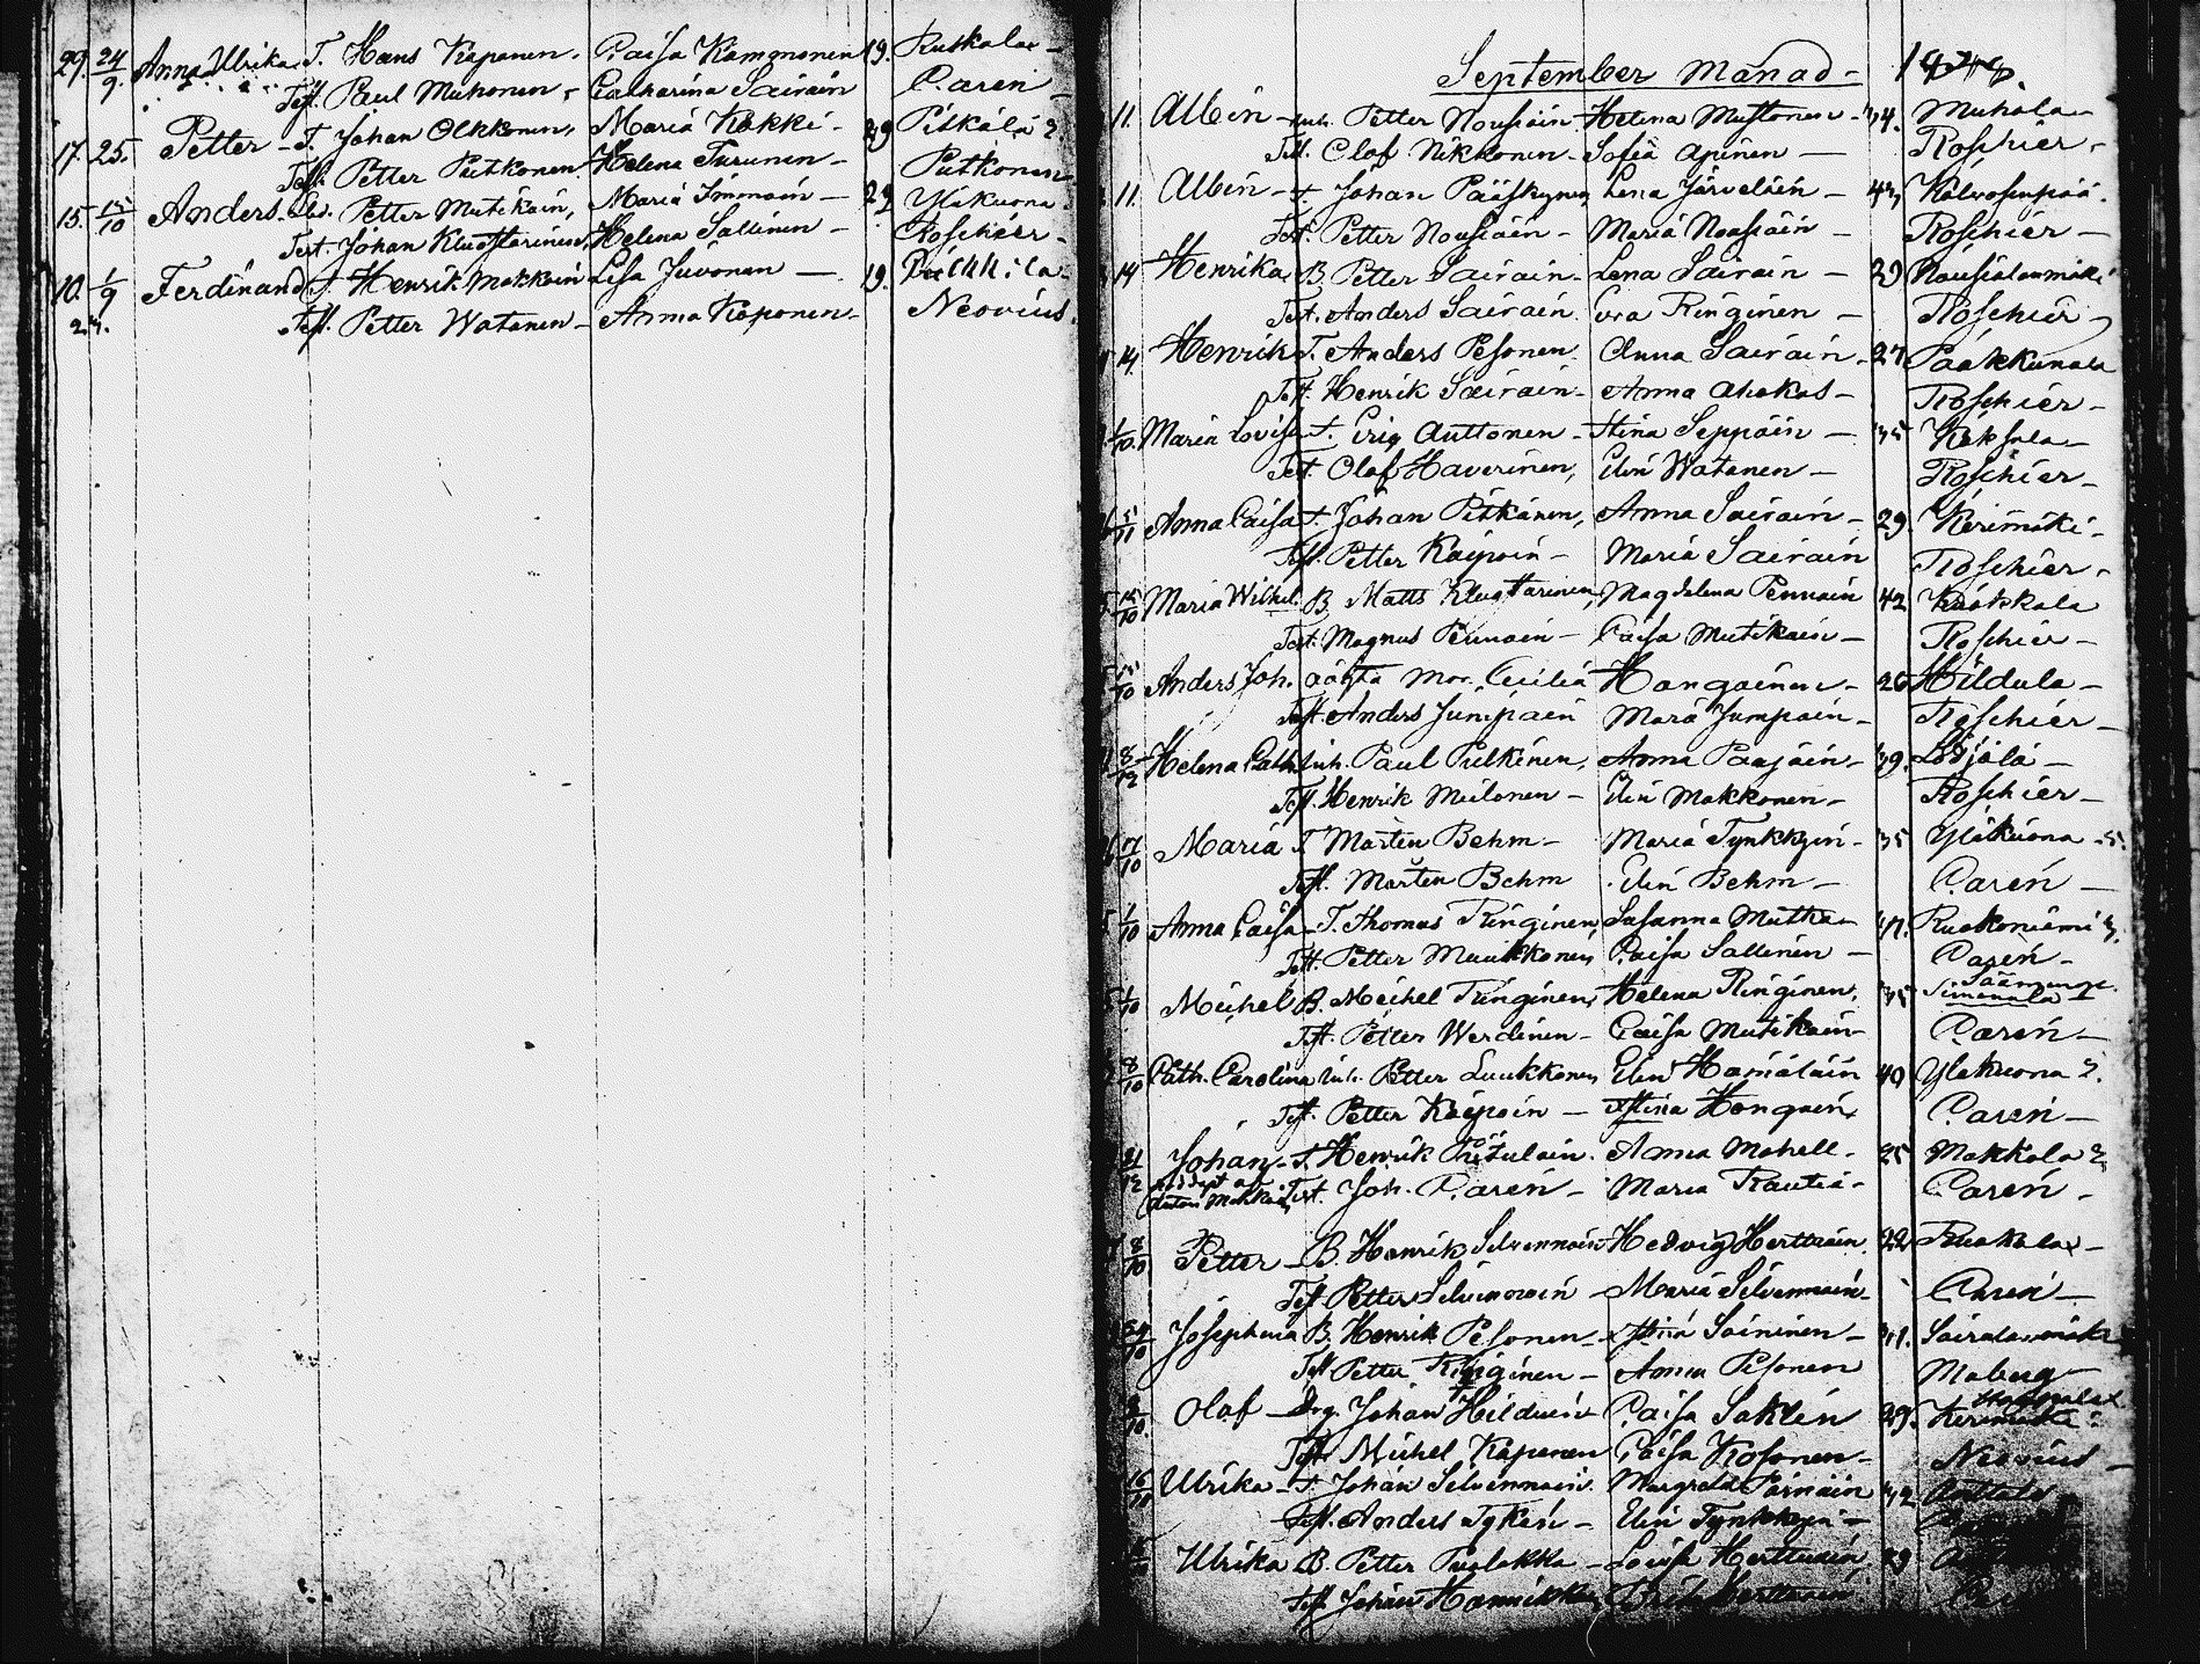 29. 24/9. Anna Ulrika T. Hans Kaponen. Caisa Kammonen 19. Ruskala –
Test. Paul Muhonen, Catharina Sairain Caren –
17. 25. Petter – T. Johan Olkkonen, Maria Kokki – 29 Pitkälä 2.
Test. Petter Putkonen Helena Turunen – Putkonen
15. 15/10 Anders Petter Mutikain, Maria Immoin – 22 Yläkuona
Test. Johan Klugstarinen, Helena Sallinen – Roschier –
10. 1/9 Ferdinand T. Henrik Makkoin Lisa Juvonen – 19.
24. Test. Petter Watanen – Anna Koponen – Neovius.
September Månad –
11. Albin – inh. Petter Nousiain Helena Mustonen – 34. Muhola –
Test. Olof Nikkonen – Sofia Apinen – Roschier,
11. Albin – T. Johan Pääskynen Lena Järveläin – 43 Kolvosenpää.
Test. Petter Nousiain – Maria Nousiain – Roschier –
14 Henrika B. Petter Sairain – Lena Sairain – 29 Nousialanmäki
Test. Anders Sairain. Eva Ringinen – Roschier
14. Henrik T. Anders Pesonen. Anna Sairain – 27. Pääkkunala
Test. Henrik Sairain – Anna Ahokas – Roschier –
1/10. Maria Lovisa T. Eriq Auttonen – Stina Seppäin – 35 Koksala –
Test. Olof Haverinen, Elin Watanen – Roschier –
5/11 Anna Caisa T. Johan Pitkänen, Anna Sairain – 29. Kerimäki –
Test. Petter Kaipain – Maria Sairain Roschier.
15/10 Maria Wilhel. B. Matts Klugstarinen, Magdalena Pennain 42 Kuokkala
Test. Magnus Pennain – Caisa Mutikain – Roschier –
15/10 Anders Joh. oägta Mor. Cecilia Hangainen – 26 Hildula –
Test. Anders Junipain Maria Jumpain – Roschier –
8/12 Helena Cath. inh. Paul Pulkinen, Anna Paajain – 39. Lödjälä –
Test. Henrik Muilonen – Elin Makkonen – Roschier –
17/10 Maria T Mårten Behm – Maria Tynkkyin – 35 Yläkuona – 5.
Test. Mårten Behm Elin Behm – Caren –
1/10 Anna Caisa – T. Thomas Ringinen Susanna Mutka – 37. Ruokoniemi 3.
Test. Petter Muukkonen, Caisa Sallinen – Caren –
1/10 Michel B. Michel Ringinen, Helena Ringinen. 35 Simunala
Sääminge
Test. Petter Werdinen – Caisa Mutikain – Caren –
8/10 Cath. Carolina inh. Petter Luukkonen Elin Hämäläin 40 Yläkuona 2.
Test. Petter Kaipain – Stina Hongain, Caren –
21/12 Johan – T. Henrik Anna Mahell – 25 Makkola 2
Test. Joh. Caren – Maria Rautia – Caren –
8/10 Petter – B. Henrik Silvennoin Hedvig Herttuain 22 Ruokolax –
Test Petter Silvennoin – Maria Silvennoin – Caren –
Josephina B. Henrik Pesonen – Stina Soininen – 31. Sairalanmäki
Test Petter Ringinen – Anna Pesonen Moberg –
Olof – Johan Caisa Saklén 29. Kerimäki
Test. Michel Kaponen Caisa Kosonen – Neovius –
16/10 Ulrika – T. Johan Silvennoin. Margreta Pärnäin 32
Test. Anders Tykén – Elin Tynkkyin –
Ulrika B. Petter Puolakka – Lovisa Herttuain 29
Test. Johan